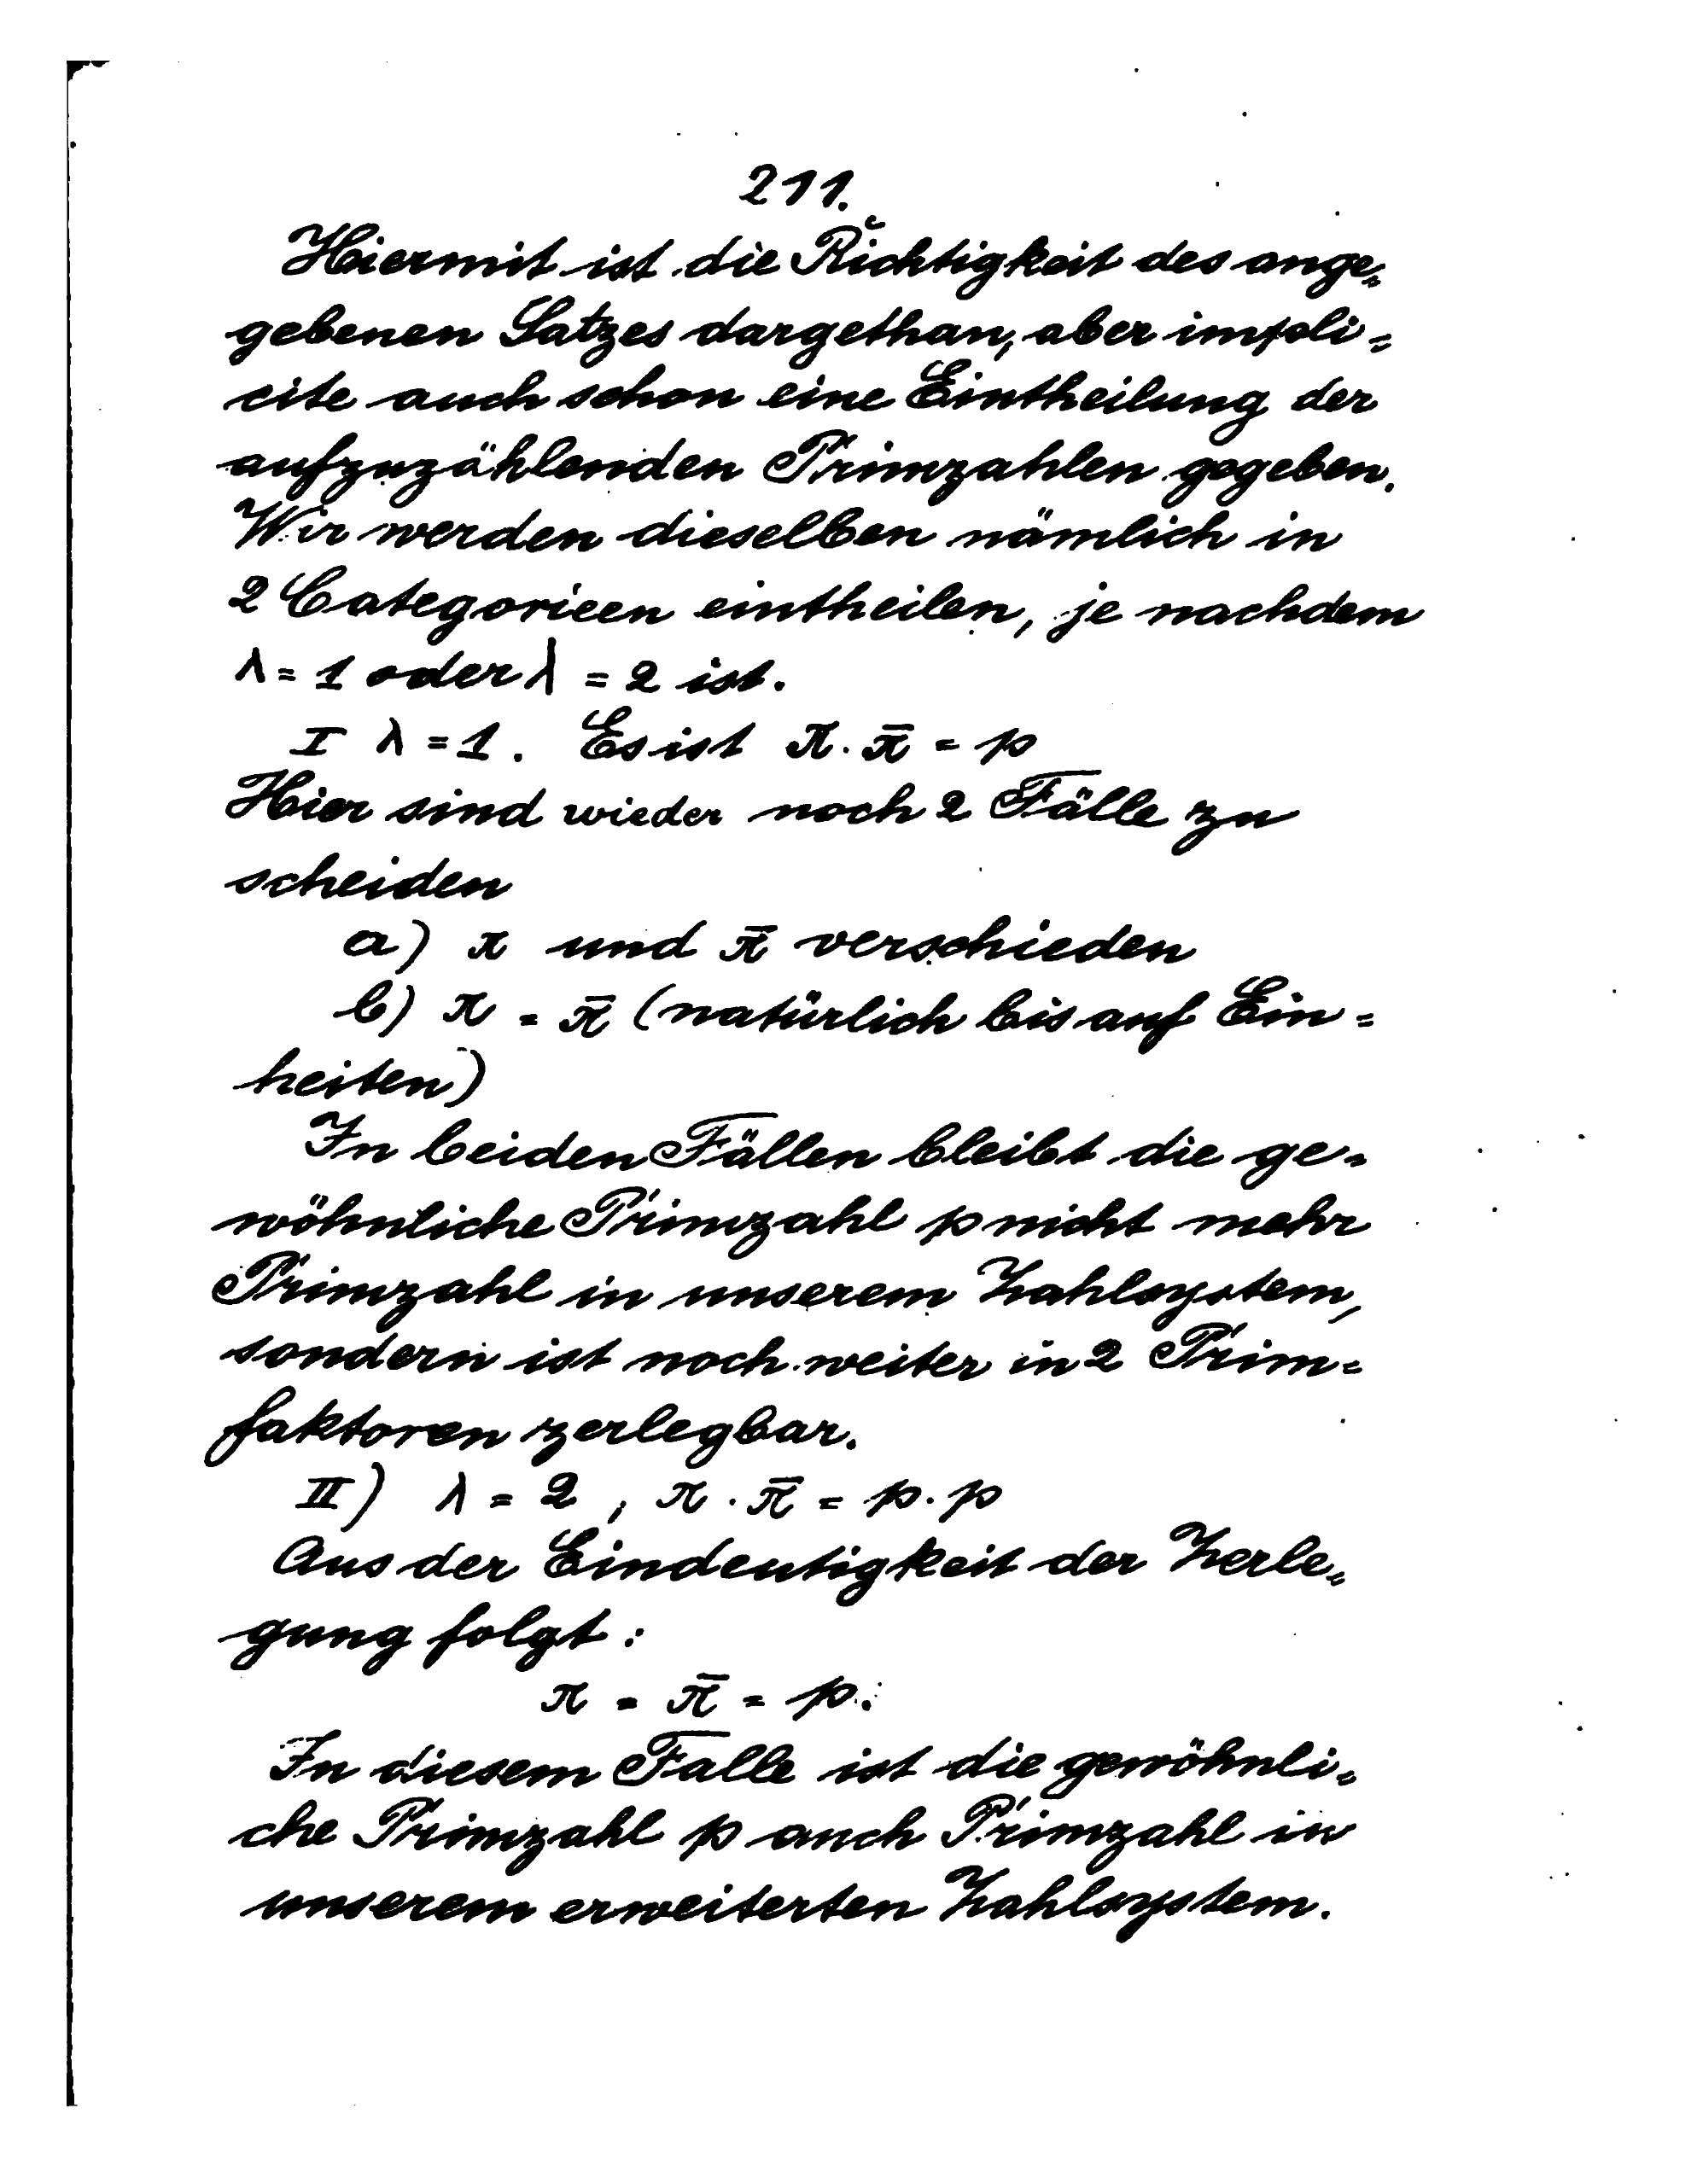 211.
Hiermit ist die Richtigkeit des ange=
gebenen Satzes dargethan, aber impli=
cite auch schon eine Eintheilung der
aufzuzählenden Primzahlen gegeben.
Wir werden dieselben nämlich in
2 Categorieen eintheilen, je nachdem
λ = 1 oder λ = 2 ist.
I λ = 1. Es ist π · π̄ = p
Hier sind wieder noch 2 Fälle zu
scheiden
a) π und π̄ verschieden
b) π = π̄ (natürlich bis auf Ein=
heiten)
In beiden Fällen bleibt die ge=
wöhnliche Primzahl p nicht mehr
Primzahl in unserem Zahlsystem,
sondern ist noch weiter in 2 Prim=
faktoren zerlegbar.
II) λ = 2, π · π̄ = p · p
Aus der Eindeutigkeit der Zerle=
gung folgt:
π = π̄ = p.
In diesem Falle ist die gewöhnli=
che Primzahl p auch Primzahl in
unserem erweiterten Zahlsystem.